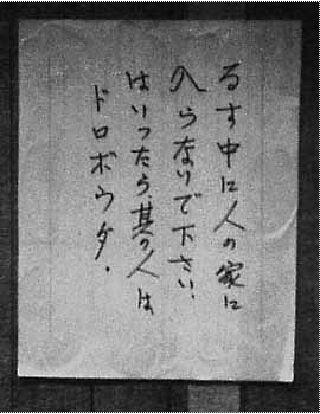 るす中に人の家に
入らないで下さい、
はいったら、其の人は
ドロボウダ.